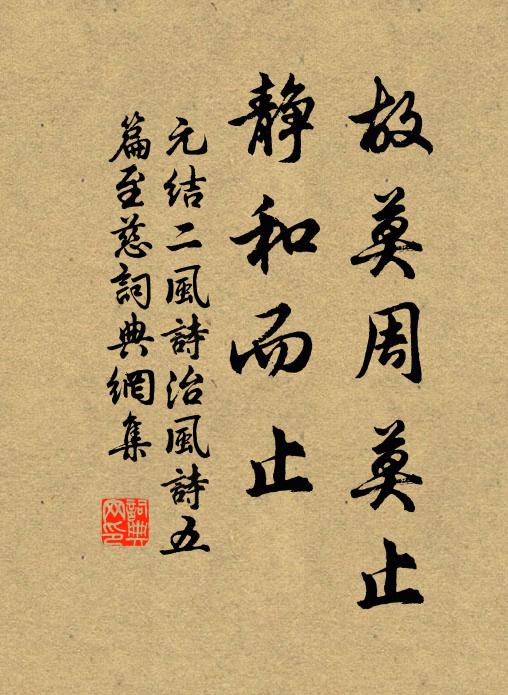 故莫周莫止
静和而止
元结二風詩治風詩五
篇至慈詞典網集
詞典
网印